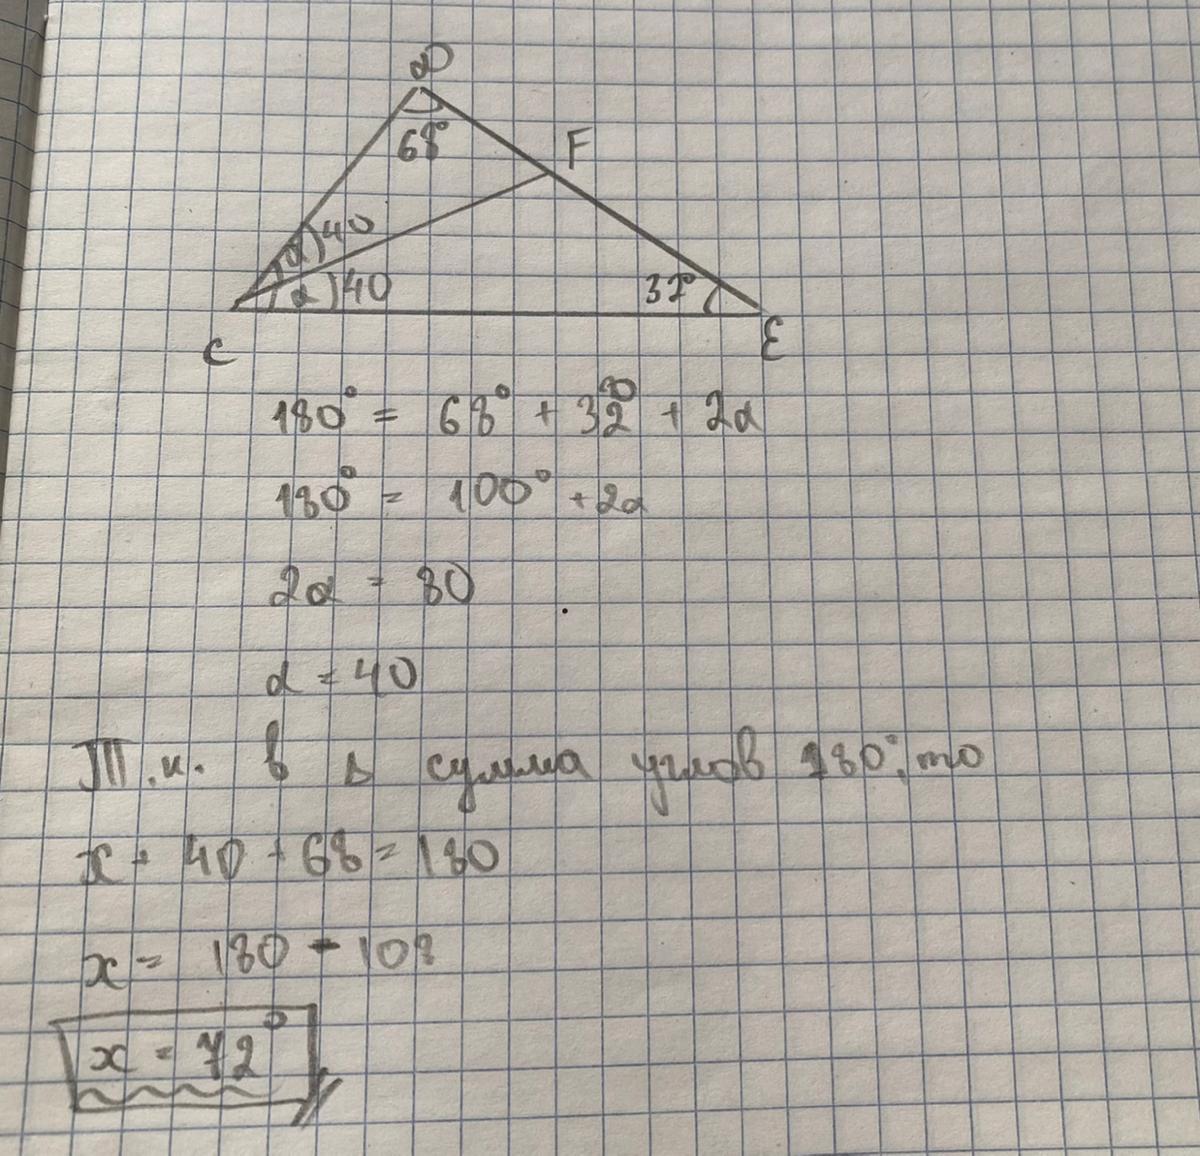 D
68°
F
α)40
α)40
32°
C
E
180° = 68° + 32° + 2α
180° = 100° + 2α
2α = 80
α = 40
Т.к. в Δ сумма углов 180°, то
x + 40 + 68 = 180
x = 180 - 108
x = 72°